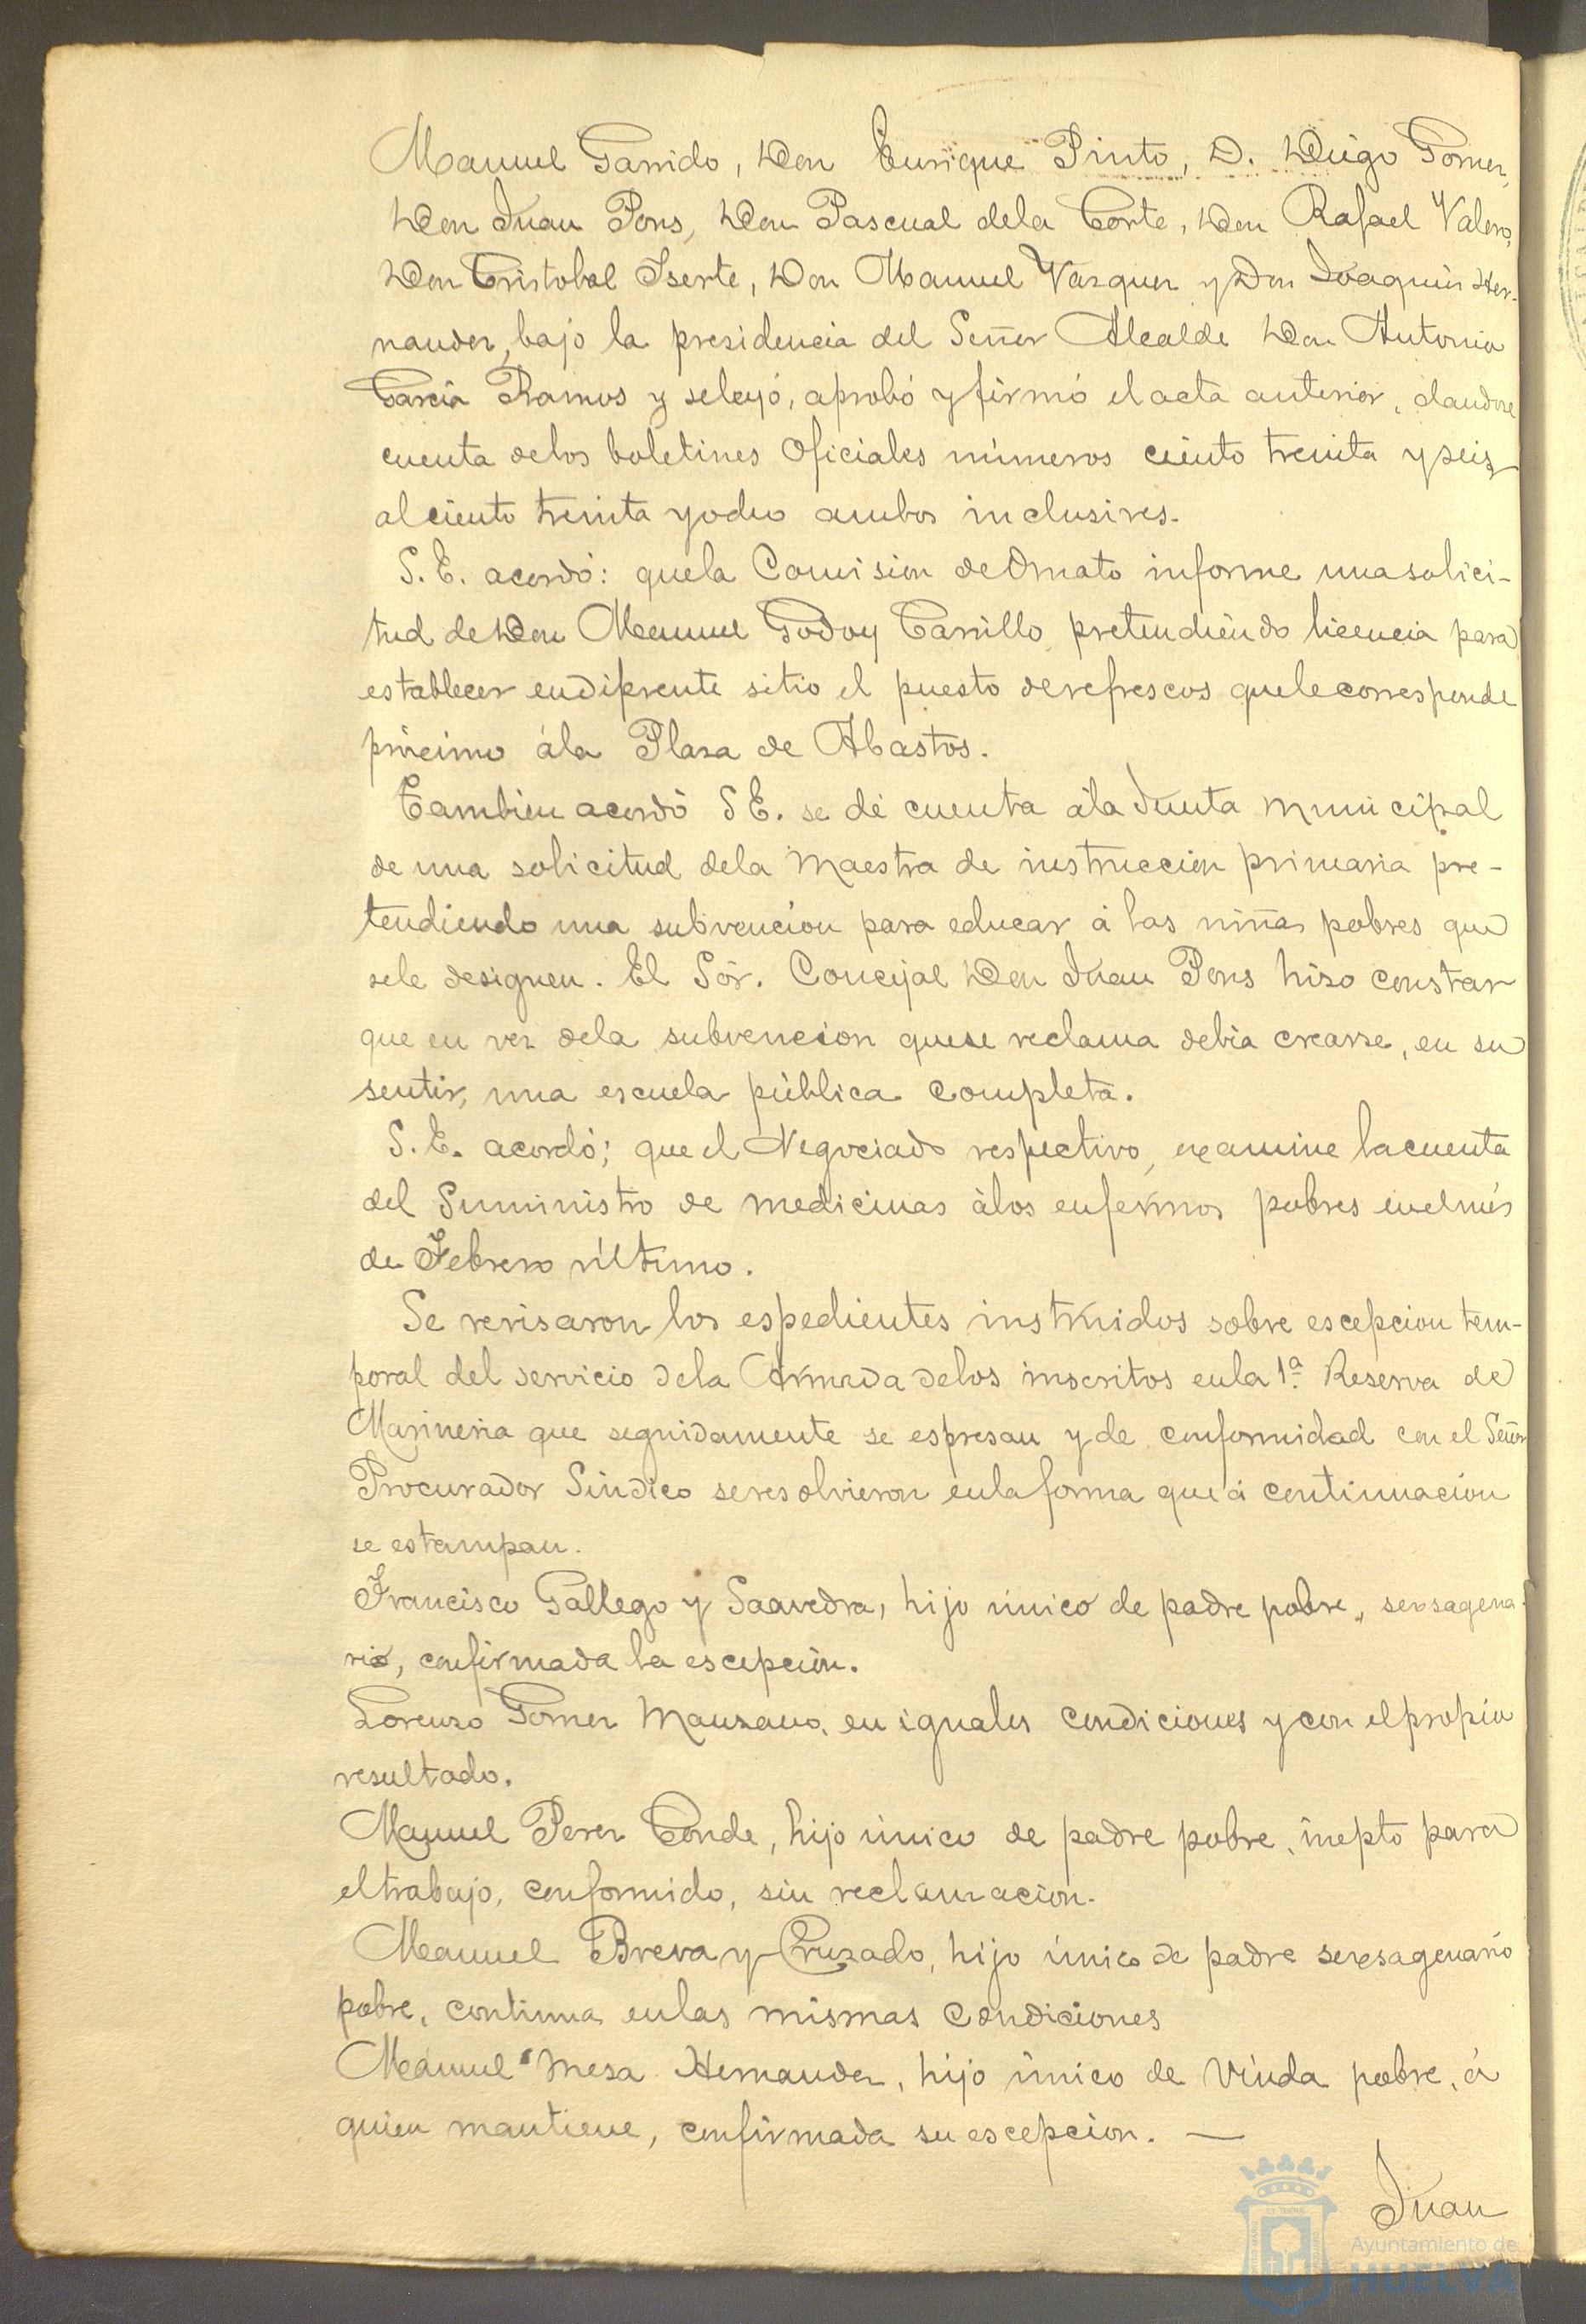 Manuel Garrido, Don Enrique Pinto, D. Diego Gomez,
Don Juan Pons, Don Pascual dela Corte, Don Rafael Valero,
Don Cristobal Iserte, Don Manuel Vazquez y Don Joaquin Her-
nandez, bajo la presidencia del Señor Alcalde Don Antonio
Garcia Ramos y seleyó, aprobó y firmó el acta anterior, dandose
cuenta delos boletines Oficiales números ciento treinta y seis
al ciento treinta y ocho ambos inclusives.
S. E. acordó: quela Comision de Ornato informe una solici-
tud de Don Manuel Godoy Carrillo pretendiendo licencia para
establecer en diferente sitio el puesto de refrescos quele corresponde
prócimo ála Plaza de Abastos.
Tambien acordó S E. se dé cuenta ála Junta municipal
de una solicitud dela Maestra de instruccion primaria pre-
tendiendo una subvencion para educar á las niñas pobres que
sele designen. El Sór. Concejal Don Juan Pons hizo constar
que en vez dela subvencion que se reclama debia crearse, en su
sentir, una escuela pública completa.
S. E. acordó; que el Negociado respectivo, examine la cuenta
del Suministro de medicinas álos enfermos pobres en el més
de Febrero último.
Se revisaron los espedientes instruidos sobre escepcion tem-
poral del servicio dela Armada delos inscritos enla 1ª Reserva de
Marineria que seguidamente se espresan y de conformidad con el Señor
Procurador Síndico se resolvieron enla forma que á continuacion
se estampan.
Francisco Gallego y Saavedra, hijo único de padre pobre, sexsagena-
rio, confirmada la escepcion.
Lorenzo Gomez Manzano, en iguales condiciones y con el propio
resultado.
Manuel Perez Conde, hijo único de padre pobre, inepto para
el trabajo, conformido, sin reclamacion.
Manuel Breva y Cruzado, hijo único de padre sexsagenario
pobre, continua enlas mismas condiciones
Manuel Mesa Hernandez, hijo único de Viuda pobre, á
quien mantiene, confirmada su escepcion. —
Juan
Ayuntamiento de
HUELVA